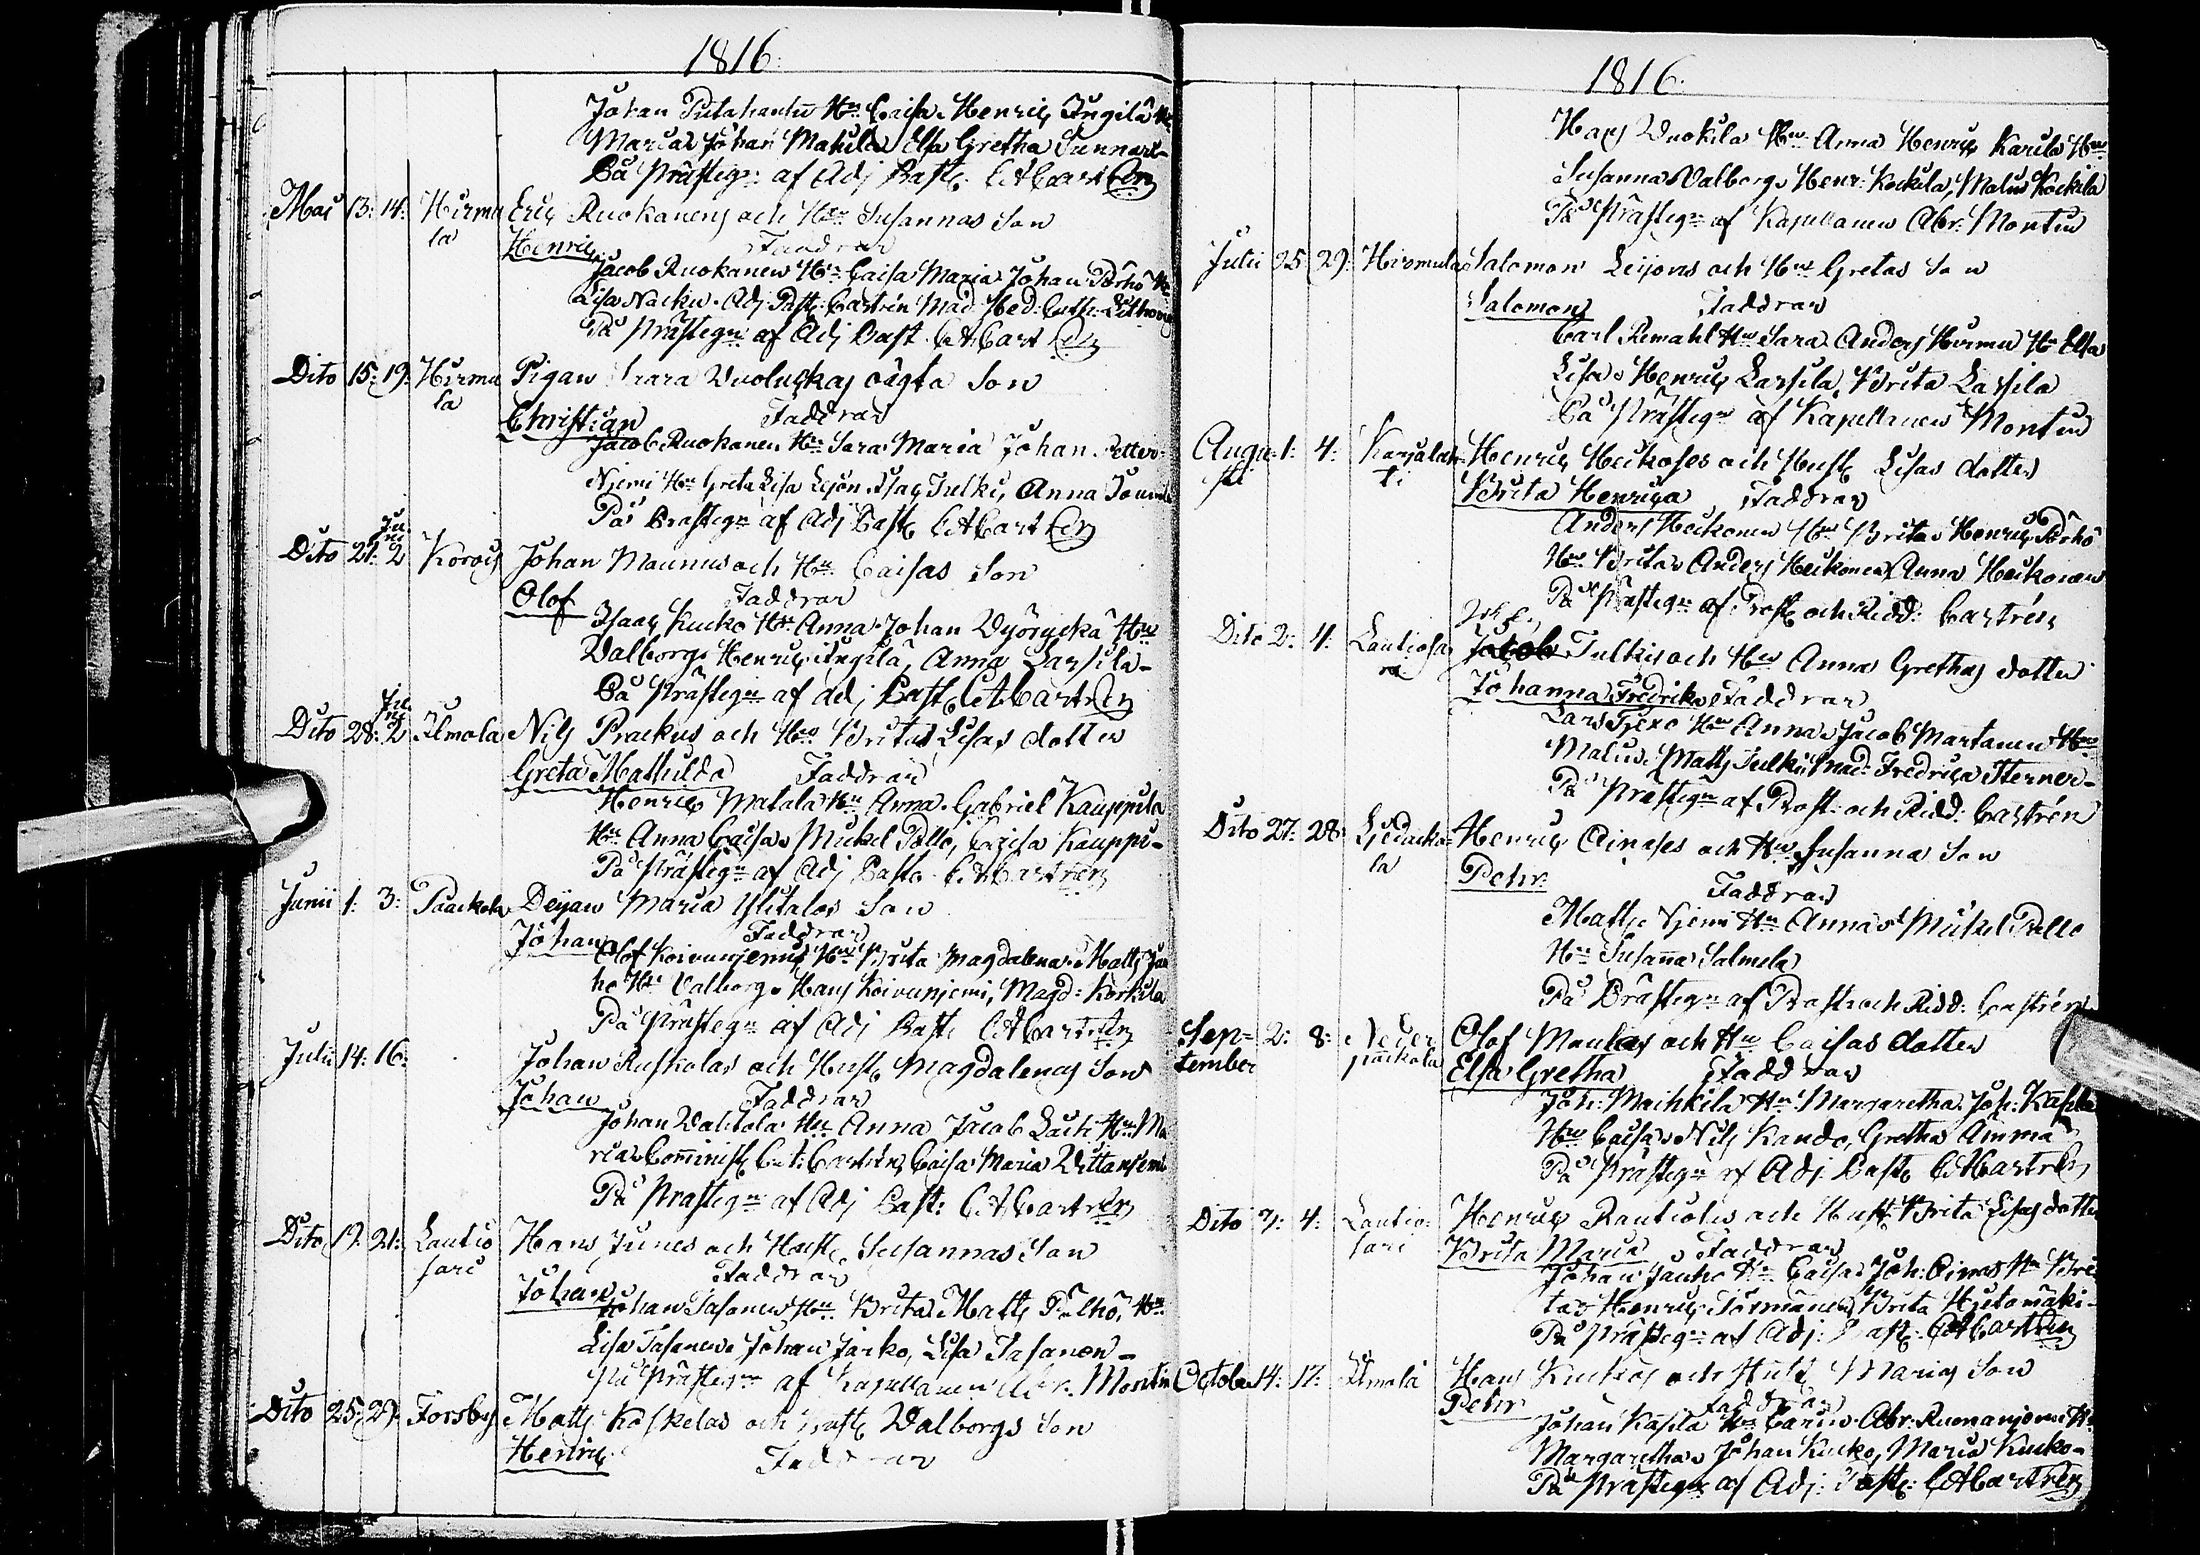 1816:
Johan Pietahantu Hu Caisa. Henric Ungila Hu
Maria. Johan Makila Elsa Gretha Sunnari-
På Prästegn af Adj Past: C A Castren
Maii 13: 14: Hirmu Eric Ruokanens och Hu Susannas Son
la
Henric Faddrar
Jacob Ruokanen Hu Caisa Maria Johan Pörhö Hu
Lisa Nacku. Adj: Past: Castrén Mad: Hed: Cath:
På Prästegn af Adj Past C A Castren
Dito 15: 19: Hirmu Pigan Sara oägta Son
la
Christian Faddrar
Jacob Ruokanen Hu Sara Maria Johan Petter
Njemi Hu Greta Lisa Leijon. Isac Julku, Anna
På Prästegn af Adj Past C A Castren
Juni
Dito 21: 2 Korois Johan Maunus och Hu Caisas Son
Olof Faddrar
Isaac Kucko Hu Anna. Johan Hu
Walborg. Henric Ungila, Anna Larsila-
På Prästegn af Adj Past C A Castren
Juni
Dito 28: 2 Ilmola Nils Prackus och Hu Brita Lisas dotter
Greta Mathilda Faddrar
Henric Matala Hu Anna. Gabriel Kauppila
Hu Anna Caisa. Mickel Pello, Caisa Kauppi-
På Prästegn af Adj Past C A Castren
Junii 1: 3: Paackola Dejan Maria Ylitalos Son
Johan Faddrar
Olof Koivunjemi Hu Brita Magdalena. Matts Jun
ho Hu Valborg. Hans Koivunjemi, Magd: Korkila
På Prästegn af Adj Past: C A Castren
Julii 14: 16: Johan Ruskolas och Hust: Magdalenas Son
Johan Faddrar
Johan Hu Anna Jacob Lacti Hu Ma
ria. Comminist: Castrén, Caisa Maria
På Prästegn af Adj Past: C A Castren
Dito 19: 21: Lautio Hans Junes och Hust: Susannas Son
sari Faddrar
Johan
Johan Tasanen Hu Brita. Matts Hu
Lisa Tasanen. Johan Jarko, Lisa Tasanen-
På Prästegn af Kapellanen Abr: Montin
Dito 25: 29: Forsby Matts Koskelas och Hust: Walborgs Son
Henric Faddrar
1816:
Hans Wuokila Hu Anna Henric Karila Hu
Susanna Valborg. Henr: Kockila, Malin Kockila
På Prästegn af Kapellanen Abr: Montin
Julii 25 29: Hirmula Salomon Leijons och Hu Gretas Son
Salomon Faddrar
Carl Remahl Hu Sara. Anders Hurmu Hu Elsa
Lisa. Henric Larsila, Brita Larsila
På Prästegn af Kapellanen Montin
Augu- 1: 4: Karjalah- Henric Heikoses och Hust Lisas dotter
sti ti
Brita Henrica Faddrar
Anders Heikonen Hu Brita. Henric Pörhö
Hu Brita. Anders Heikonen, Anna Heikonen
På Prästegn af Prost och Ridd: Castrén
Joh:
Dito 2: 4: Lautiosa Julkus och Hu Anna Grethas dotter
ri
Johanna Fredrika Faddrar
Lars Hu Anna. Jacob Martanen Hu
Malin. Matts Julku, Mad: Fredrica Sterner-
På Prästegn af Prost: och Ridd: Castrén
Dito 27: 28: Liedacko- Henric Ainases och Hu Susanna Son
la
Pehr Faddrar
Matts Njemi Hu Anna. Mickel Pello
Hu Susanna Salmela
På Prästegn af Prost: och Ridd: Castrén
Sep- 2: 8: Neder Olof Maulas och Hu Caisas dotter
tember päckola
Elsa Gretha Faddrar
Joh: Maihkila Hu Margaretha. Joh: Kassila
Hu Caisa. Nils Kando, Gretha Ämmä
På Prästegn af Adj Past: C A Castren
Dito 3: 4: Lautio- Henric Rautiolas och Hust Brita Lisas dotter
sari
Brita Maria Faddrar
Johan Junho Hu Caisa. Joh: Oinas Hu Bri
ta. Henric Törmänen, Brita Hietamäki-
På Prästegn af Adj: Past: C A Castren
October 14: 17: Ilmola Hans Kuckos och Hust Marias Son
Pehr Faddrar
Johan Kassila Hu Carin. Abr: Ruonanjemi Hu
Margaretha. Johan Kucko, Maria Kucko-
På Prästegn af Adj: Past: C A Castren